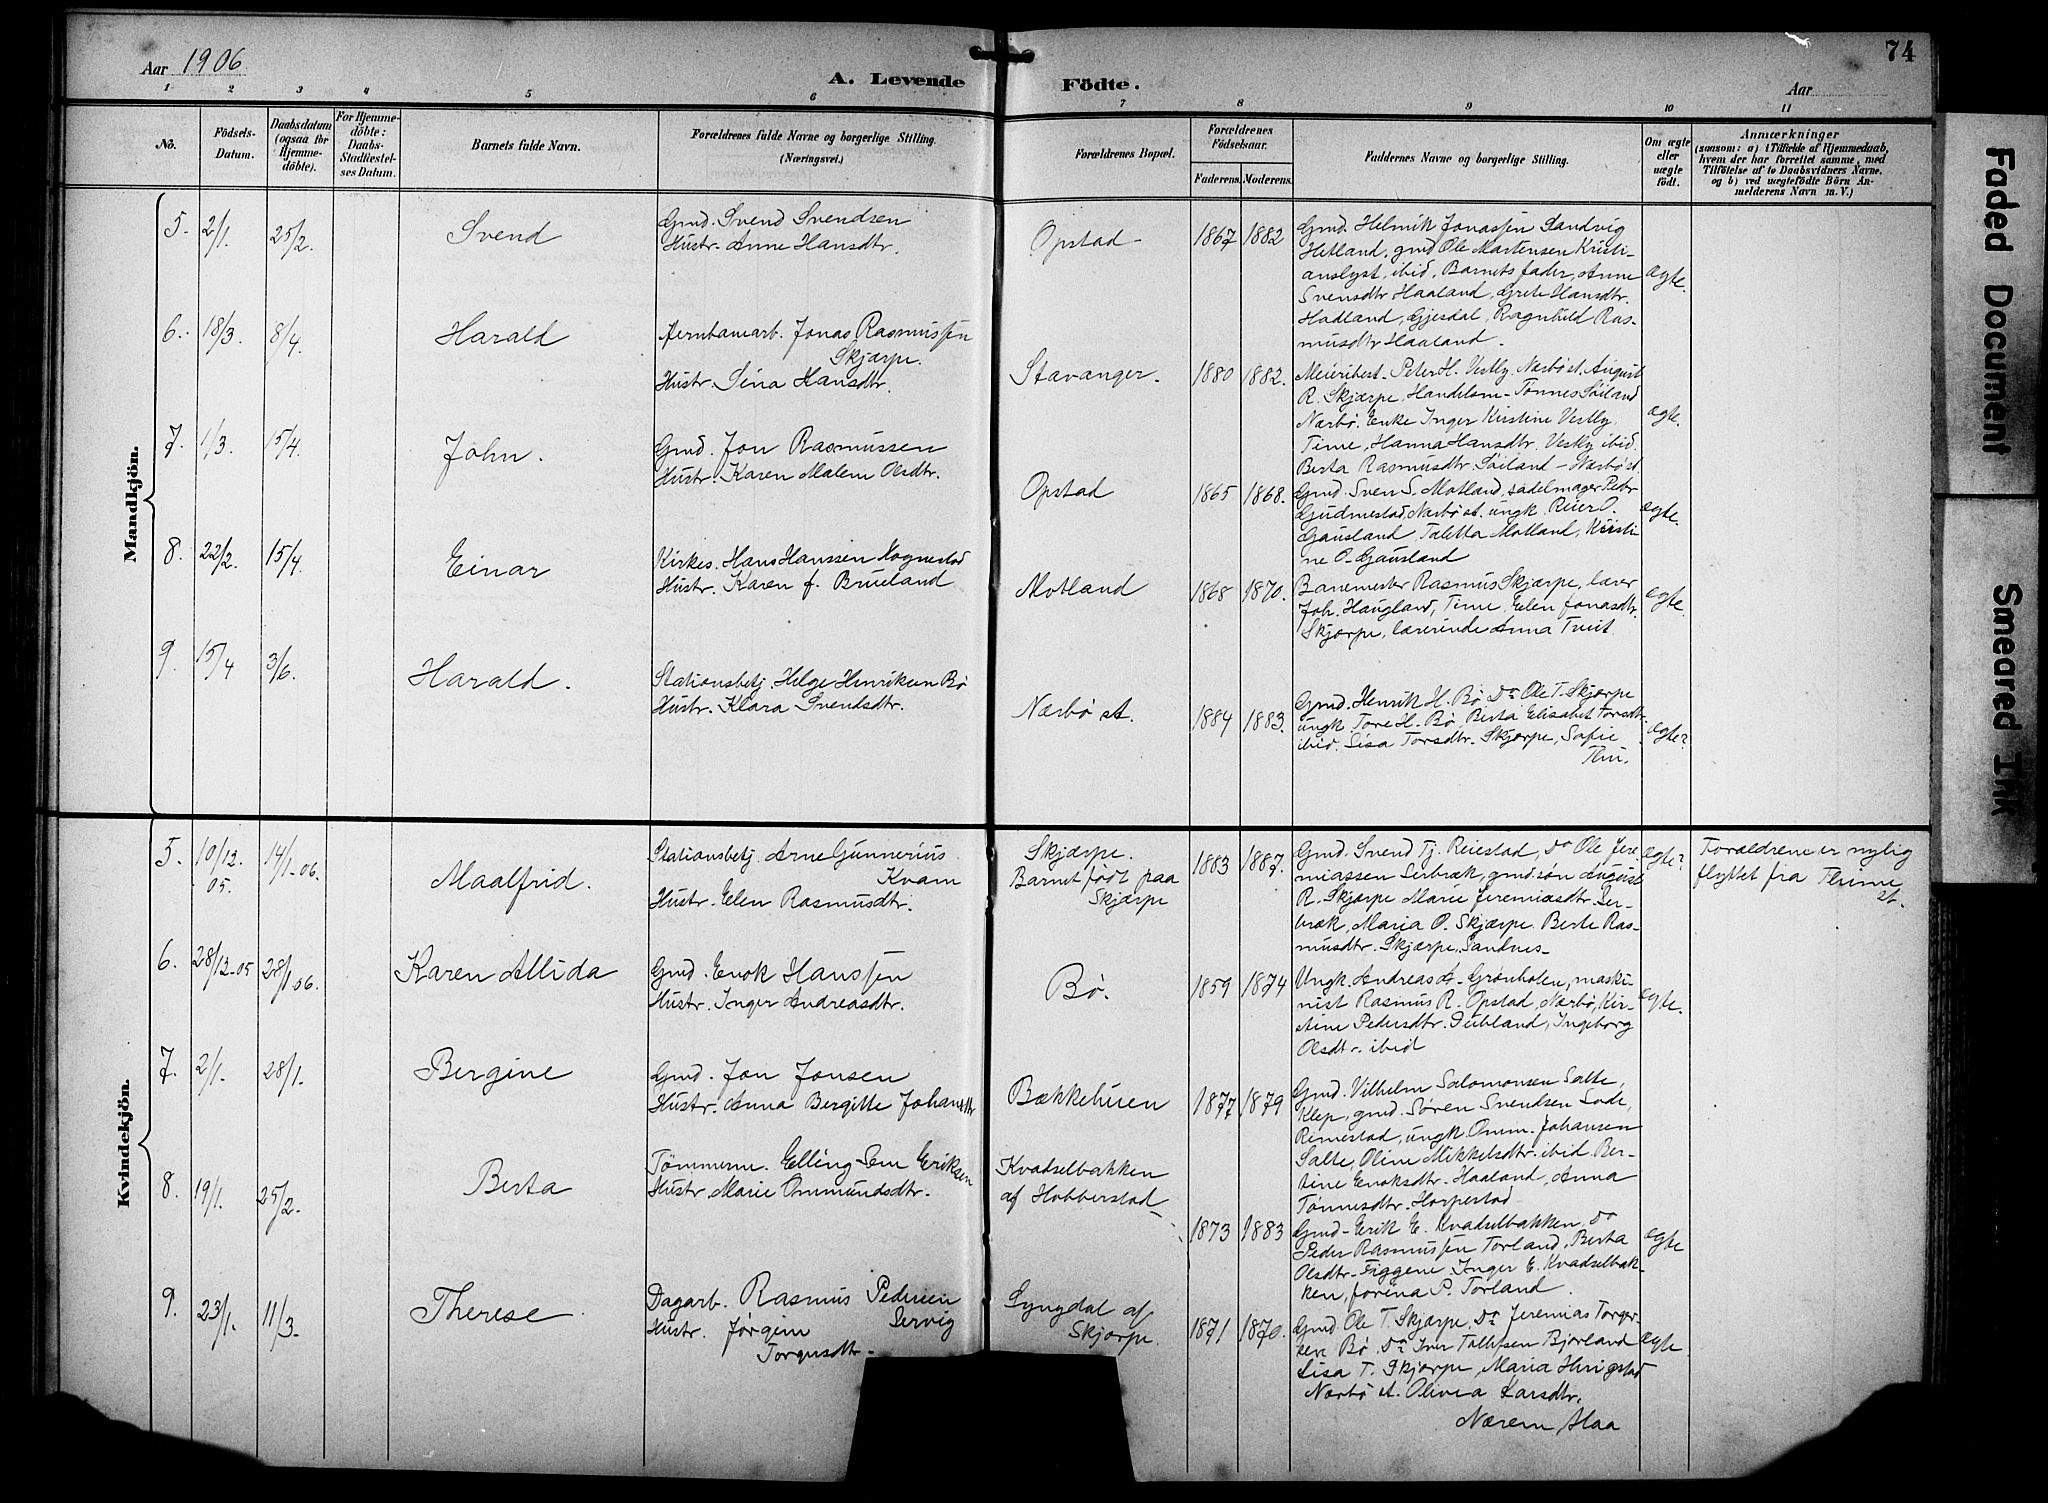 Aar 1906
A. Levende Födte.
Aar
74
1 2 3 4 5 6 7 8 9 10 11
No.
Födsels-Datum.
Daabsdatum (ogsaa for Hjemmedöbte).
For Hjemmedöbte: Daabs-Stadfæstelses Datum.
Barnets fulde Navn.
Forældrenes fulde Navne og borgerlige Stilling.
(Næringsvei.)
Forældrenes Bopæl.
Forældrenes Födselsaar.
Faderens. Moderens.
Faddernes Navne og borgerlige Stilling.
Om ægte eller uægte födt.
Anmærkninger
(saasom: a) i Tilfælde af Hjemmedaab, hvem der har forrettet samme, med Tilföielse af to Daabsvidners Navne, og b) ved uægtefödte Börn Anmelderens Navn m. V.)
Mandkjön.
5. 2/1. 25/2. Svend
Gmd. Svend Svendsen
Hustr. Anne Hansdtr.
Opstad 1867 1882
Gmd. Helmik Jonassen Sandvig
Hetland, gmd Ole Martensen Kristi-
anslyst, ibid, Barnets fader, Anne
Svensdtr Haaland, Grete Hansdtr.
Hadland, Gjesdal, Ragnhild Ras-
musdtr Haaland.
ægte.
6. 18/3. 8/4. Harald
Jernbanearb. Jonas Rasmussen
Skjærpe.
Hustr. Sina Hansdtr.
Stavanger. 1880 1882.
Meieribest. Peter H. Vestly, Nærbø st, August
R. Skjærpe, Handelsm. Tønnes Søiland
Nærbø, Enke Inger Kristine Vestly
Time, Hanna Hansdtr. Vestly ibid.
Berta Rasmusdtr. Søiland - Nærbø st.
ægte.
7. 1/3. 15/4. John.
Gmd. Jon Rasmussen
Hustr. Karen Malene Olsdtr.
Opstad 1865 1868.
Gmd. Sven S. Motland, sadelmager Peder
Gudmestad, Nærbø st. ungk. Reier O.
Gausland, Taletta Motland, Kristi-
ne O. Gausland
ægte.
8. 22/2. 15/4. Einar
Kirkes. Hans Hanssen Hognestad
Hustr. Karen f. Brueland
Motland 1868 1870.
Banemester Rasmus Skjærpe, lærer
Joh. Haugland, Time, Elen Jonasdtr.
Skjærpe, lærerinde Anna Tveit.
ægte
9. 15/4 3/6. Harald.
Stationsbetj. Helge Henriksen Bø
Hustr. Klara Svendsdtr.
Nærbø st. 1884 1883.
Gmd. Henrik H. Bø Do Ole T. Skjærpe
ungk. Tore H. Bø, Berta Elisabet Torsdtr.
ibid. Lisa Torsdtr. Skjærpe, Sofie
Thu.
ægte?
Kvindekjön.
5. 10/12. 05. 14/1-06. Maalfrid.
Stationsbetj. Arne Gunnerius
Kvam
Hustr. Elen Rasmusdtr.
Skjærpe.
Barnet født paa
Skjærpe
1883 1887.
Gmd. Svend Tj. Reiestad, Do Ole Jere-
miassen Serbræk, gmdsøn August
R. Skjærpe Marie Jeremiasdtr. Ser-
bræk, Maria O. Skjærpe Berte Ras-
musdtr. Skjærpe, Sandnes
ægte?
Forældrene er nylig
flyttet fra Thime
st.
6. 28/12-05 28/1 06. Karen Allida
Gmd. Enok Hanssen
Hustr. Inger Andreasdtr.
Bø. 1859 1874
Ungk. Andreas A. Grønholen, maski-
nist Rasmus R. Opstad, Nærbø, Kir-
stine Pedersdtr. Dubland, Ingeborg
Olsdtr. ibid
ægte.
7. 2/1. 28/1. Bergine
Gmd. Jon Jonsen
Hustr. Anna Bergitte Johansdtr
Bækkehuen 1877 1879
Gmd. Vilhelm Salomonsen Salte,
Klep, gmd. Søren Svendsen Lode,
Rimestad, ungk. Omm. Johansen
Salte, Oline Mikkelsdtr. ibid Ber-
tine Enoksdtr. Haaland, Anna
Tønnesdtr. Horpestad
8. 19/1. 25/2. Berta
Tømmerm. Elling Sem Eriksen
Hustr. Marie Ommundsdtr.
Kvadselbakken
af Hobberstad
1873 1883
Gmd. Erik E. Kvadselbakken, Do
Peder Rasmussen Torland, Berta
Olsdtr. Figgene, Inger E. Kvadselbak-
ken, Jorina P. Torland.
ægte
9. 23/1. 11/3. Therese
Dagarb. Rasmus Pedersen
Servig
Hustr. Jørgine
Torgersdtr.
Lyngdal af
Skjærpe.
1871 1870.
Gmd Ole T. Skjærpe, Do Jeremias Torger-
sen Bø, Do Iver Tollefsen Bjorland
Lisa T. Skjærpe, Maria Herigstad
Nærbø st. Olivia Larsdtr.
Nærem, Haa
ægte.
Faded Document
Smeared Ink